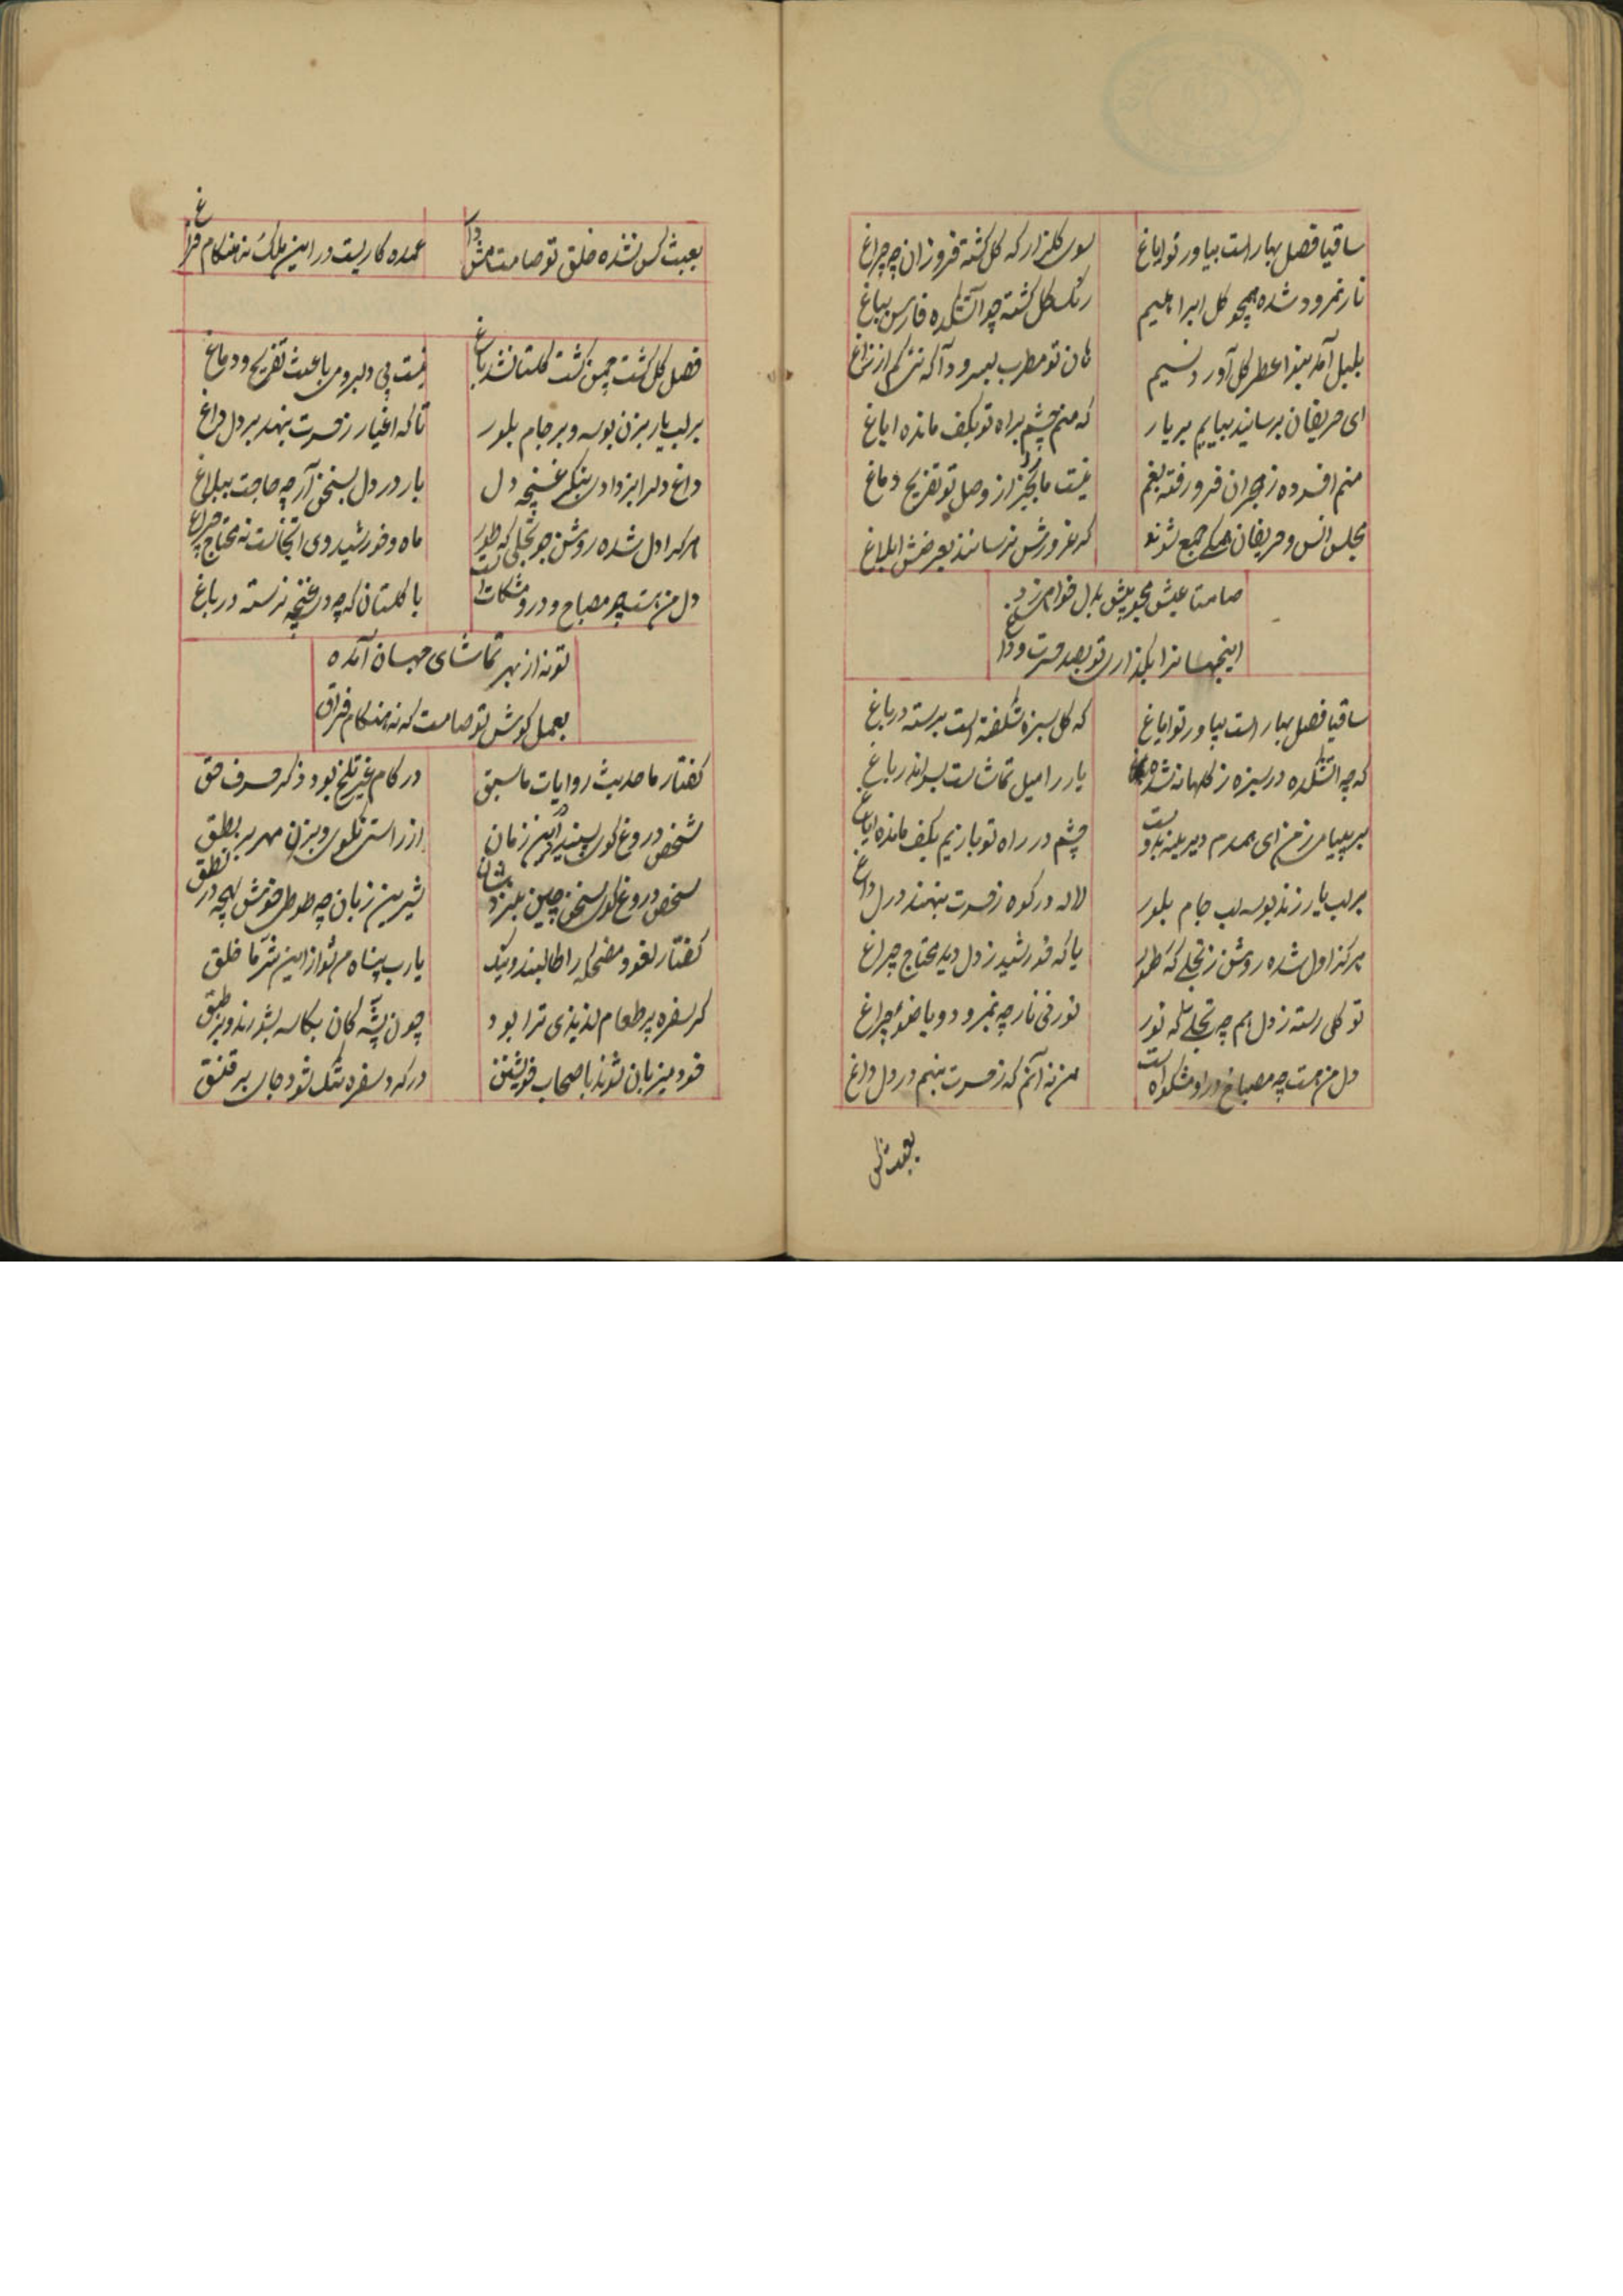 ساقیا فصل بهار است بیاور تو ایاغ
سوی گلزار که گل گشته فروزان چه چراغ
نار نمرود شده همچو گل ابراهیم
رنگ گل گشته چو آتشکده فارس بباغ
بلبل آمد بنوا عطر گل آورد نسیم
هان تو مطرب بسرود آ که نئی کم از زاغ
ای حریفان برسانید بیاییم بر یار
که منم چشم براه تو بکف مانده ایاغ
منم افسرده ز هجران فرو رفته بغم
نیست ما بجز از وصل تو تفریح دماغ
مجلس انس و حریفان همگی جمع شوند
گر غرورش نرسانند بعرضش ابلاغ
صامتا عیش بدل خواهی
اینجهانرا بگذاری تو بصد حسرت و داغ
ساقیا فصل بهار است بیاور تو ایاغ
که گل سبزه شگفته است برسته در باغ
که چه آتشکده در سبزه ز گلها نشده
یار را میل تماشاست در باغ
بر پیامی ز من ای همدم دیرینه
چشم در راه تو باز یم بکف مانده ایاغ
بر لب یار زند بوسه لب جام بلور
لاله در کوه ز حسرت بنهند در دل داغ
هر کز اول شده روشن ز تجلی که طور
یا که خورشید ز دل دید محتاج چراغ
تو گلی رسته ز دل هم چه تجلی که نور
نور فی نار چه نمرود و یا ضوء چراغ
دل من هست چه مصباح در او مشکواة است
من نه آنم که ز حسرت بنهم در دل داغ
بعبث کس
بعبث کس نشده خلق تو صامت مش‌دار
عمده کاریست در این ملک نه هنگام فراغ
فصل گل گشت چمن گشت گلستان شد باغ
نیست بی دلبر و می باعث تفریح و دماغ
بر لب یار بزن بوسه و بر جام بلور
تا که اغیار ز حسرت بنهد بر دل داغ
داغ دلرا بزدا در غنچه دل
یار در دل بسخن آر چه حاجت ببلاغ
هر کرا دل شده روشن چو تجلی که طور
ماه و خورشید وی آنجاست نه محتاج چراغ
دل من هست چو مصباح و درو مشکات است
با گلستان که چه در غنچه نرسته در باغ
تو نه از بهر تماشای جهان آمده
بعمل کوش تو صامت که نه هنگام فراق
گفتار ما حدیث روایات ما سبق
در کام غیر تلخ بود ذکر حرف حق
شخص دروغ گوی پسندند در این زمان
از راستی نگوی و بزن مهر بر نطق
شخص دروغ گوی سخن چین
شیرین زبان چه طوطی خوش لهجه در نطق
گفتار لغو و مضحکه را طالبند و نیک
یارب پناه من تو از این شر ما خلق
گر سفره پر طعام لذیذی ترا بود
چون پشه کان بکاسه بشورند و بر طبق
خود میزبان شوند باصحاب خویشتن
در گرد سفره تنگ شود جای بر قنق